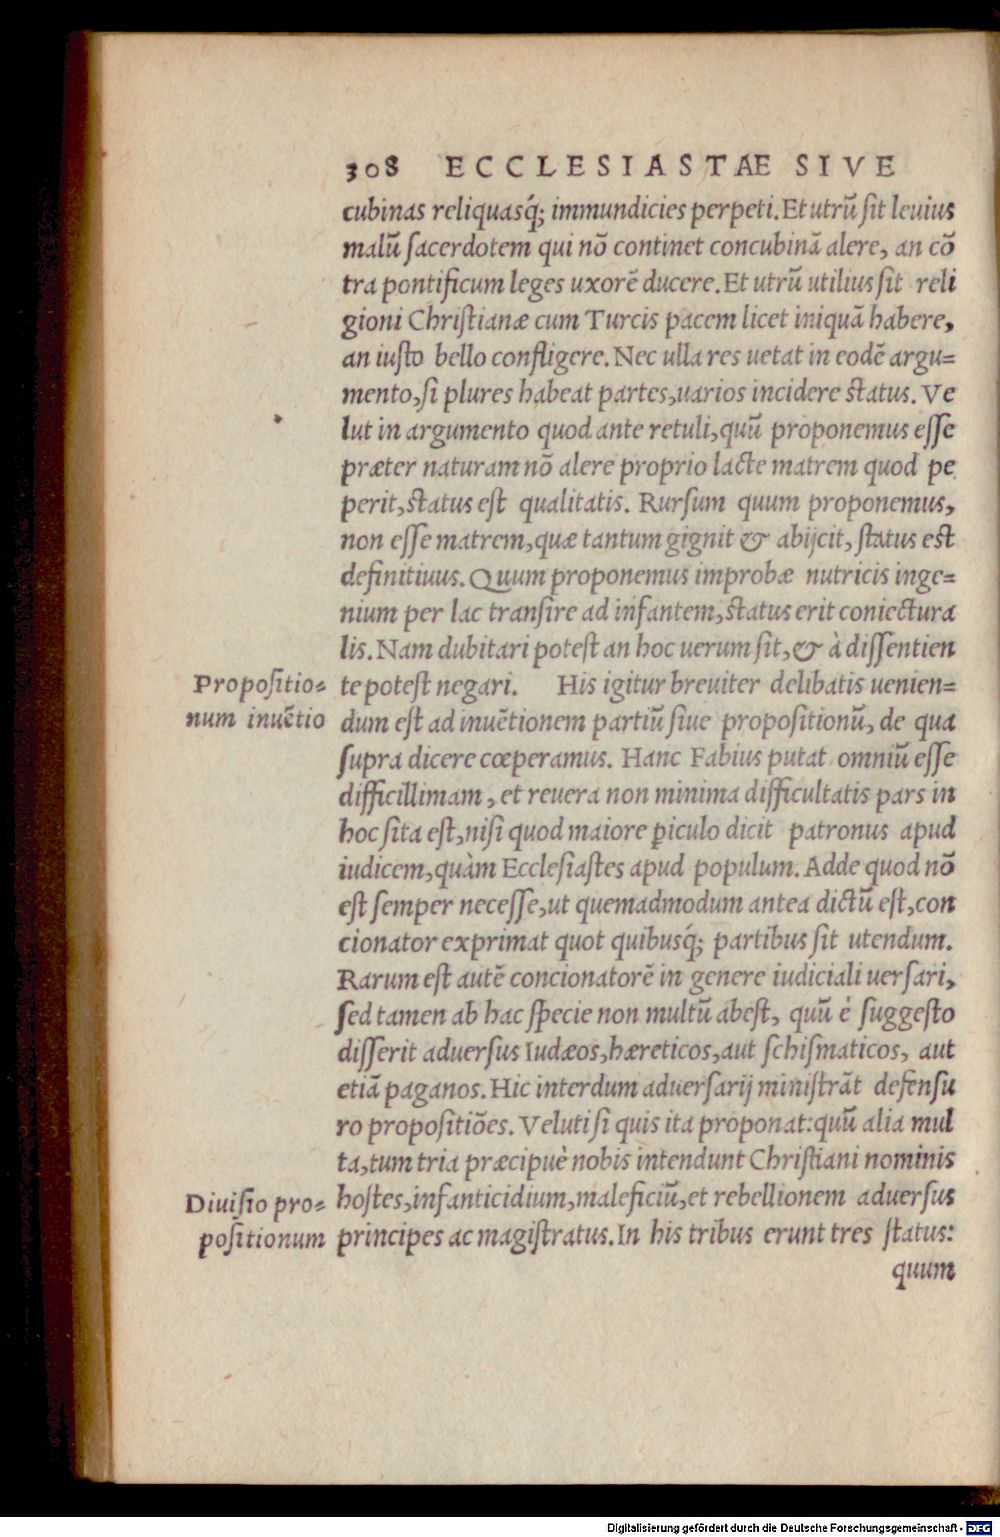 308 ECCLESIASTAE SIVE
cubinas reliquasq́; immundicies perpeti. Et utrũ sit leuius
malũ sacerdotem qui nõ continet concubinã alere, an cõ
tra pontificum leges uxorẽ ducere. Et utrũ utilius sit reli
gioni Christianæ cum Turcis pacem licet iniquã habere,
an iusto bello confligere. Nec ulla res uetat in eodẽ argu=
mento, si plures habeat partes, uarios incidere status. Ve
lut in argumento quod ante retuli, quũ proponemus esse
præter naturam nõ alere proprio lacte matrem quod pe
perit, status est qualitatis. Rursum quum proponemus,
non esse matrem, quæ tantum gignit & abijcit, status est
definitiuus. Quum proponemus improbæ nutricis inge=
nium per lac transire ad infantem, status erit coniectura
lis. Nam dubitari potest an hoc uerum sit, & à dissentien
Propositio= te potest negari. His igitur breuiter delibatis uenien=
num inuẽtio dum est ad inuẽtionem partiũ siue propositionũ, de qua
supra dicere cœperamus. Hanc Fabius putat omniũ esse
difficillimam, et reuera non minima difficultatis pars in
hoc sita est, nisi quod maiore ꝑiculo dicit patronus apud
iudicem, quàm Ecclesiastes apud populum. Adde quod nõ
est semper necesse, ut quemadmodum antea dictũ est, con
cionator exprimat quot quibusq́; partibus sit utendum.
Rarum est autẽ concionatorẽ in genere iudiciali uersari,
sed tamen ab hac specie non multũ abest, quũ è suggesto
disserit aduersus Iudæos, hæreticos, aut schismaticos, aut
etiã paganos. Hic interdum aduersarij ministrãt defensu
ro propositiões. Veluti si quis ita proponat: quũ alia mul
ta, tum tria præcipuè nobis intendunt Christiani nominis
Diuisio pro= hostes, infanticidium, maleficiũ, et rebellionem aduersus
positionum principes ac magistratus. In his tribus erunt tres status:
quum
Digitalisierung gefördert durch die Deutsche Forschungsgemeinschaft - DFG